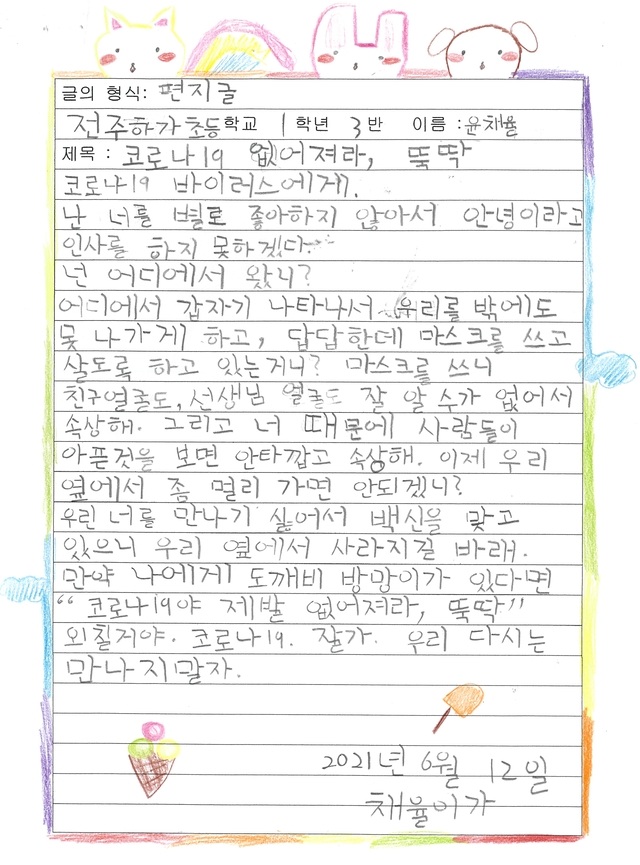 글의 형식: 편지글
전주하가초등학교 1학년 3반 이름 : 윤채율
제목 : 코로나19 없어져라, 뚝딱
코로나19 바이러스에게.
난 너를 별로 좋아하지 않아서 안녕이라고
인사를 하지 못하겠다.
넌 어디에서 왔니?
어디에서 갑자기 나타나서 우리를 밖에도
못 나가게 하고, 답답한데 마스크를 쓰고
살도록 하고 있는거니? 마스크를 쓰니
친구얼굴도, 선생님 얼굴도 잘 알 수가 없어서
속상해. 그리고 너 때문에 사람들이
아픈것을 보면 안타깝고 속상해. 이제 우리
옆에서 좀 멀리 가면 안되겠니?
우린 너를 만나기 싫어서 백신을 맞고
있으니 우리 옆에서 사라지길 바래.
만약 나에게 도깨비 방망이가 있다면
“코로나19야 제발 없어져라, 뚝딱”
외칠거야. 코로나19. 잘가. 우리 다시는
만나지말자.
2021년 6월 12일
채율이가